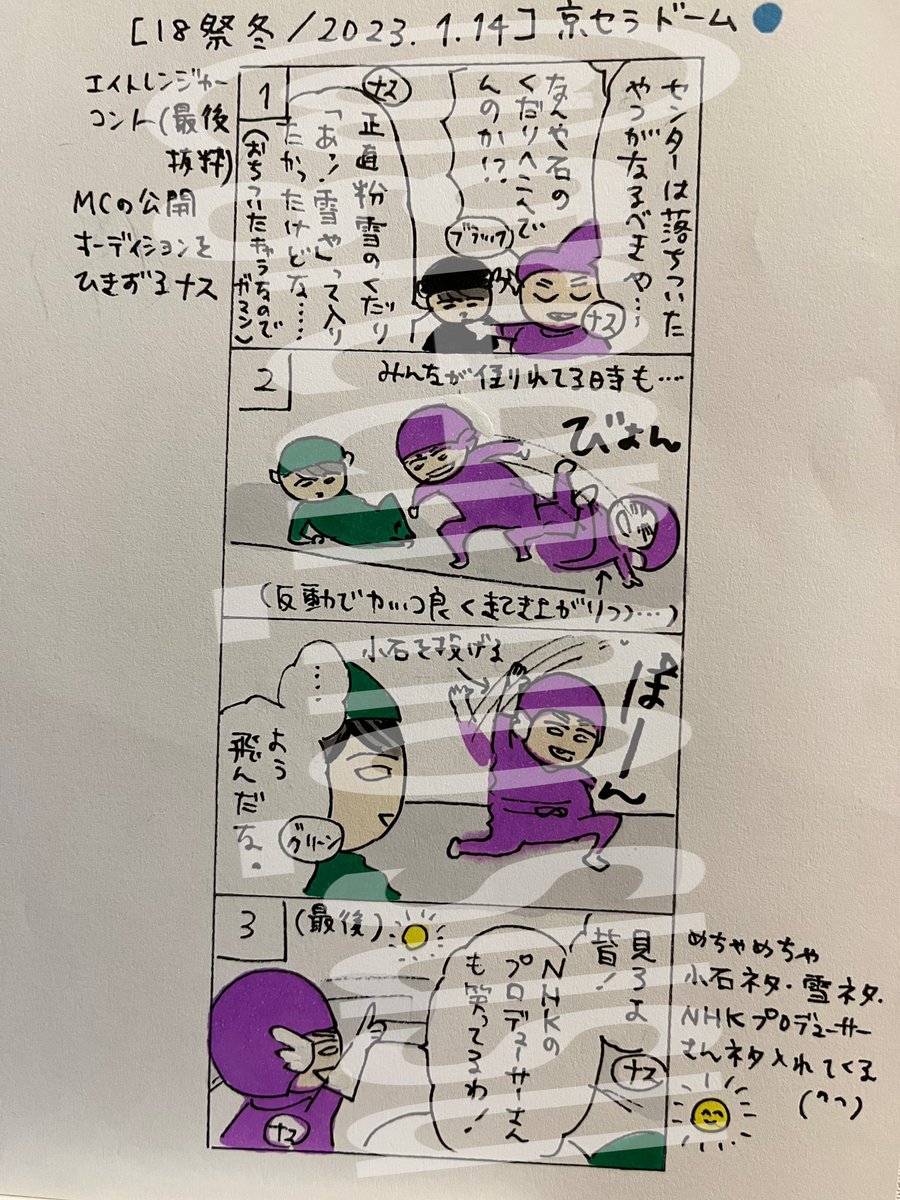 [18祭冬/2023.1.14]京セラドーム
エイトレンジャー
コント(最後
抜粋)
MCの公開
オーディションを
ひきずるナス
1
センターは落ちついた
やつがなるべきや…
なんや石の
くだりへこんで
んのか!?
ブラック
ナス
ナス
正直粉雪のくだり
「あ!雪や」って入り
たかったけどな……
(おちついたキャラなので
ガマン)
2
みんなが倒れてる時も…
びょん
(反動でかっこ良く起き上がりつつ…)
小石を投げる
ぽーん
…
よう
飛んだな。
グリーン
3
(最後)
見ろよ
皆!
NHKの
プロデューサーさん
も笑ってるわ!
ナス
ナス
めちゃめちゃ
小石ネタ・雪ネタ・
NHKプロデューサー
さんネタ入れてくる
(^^)